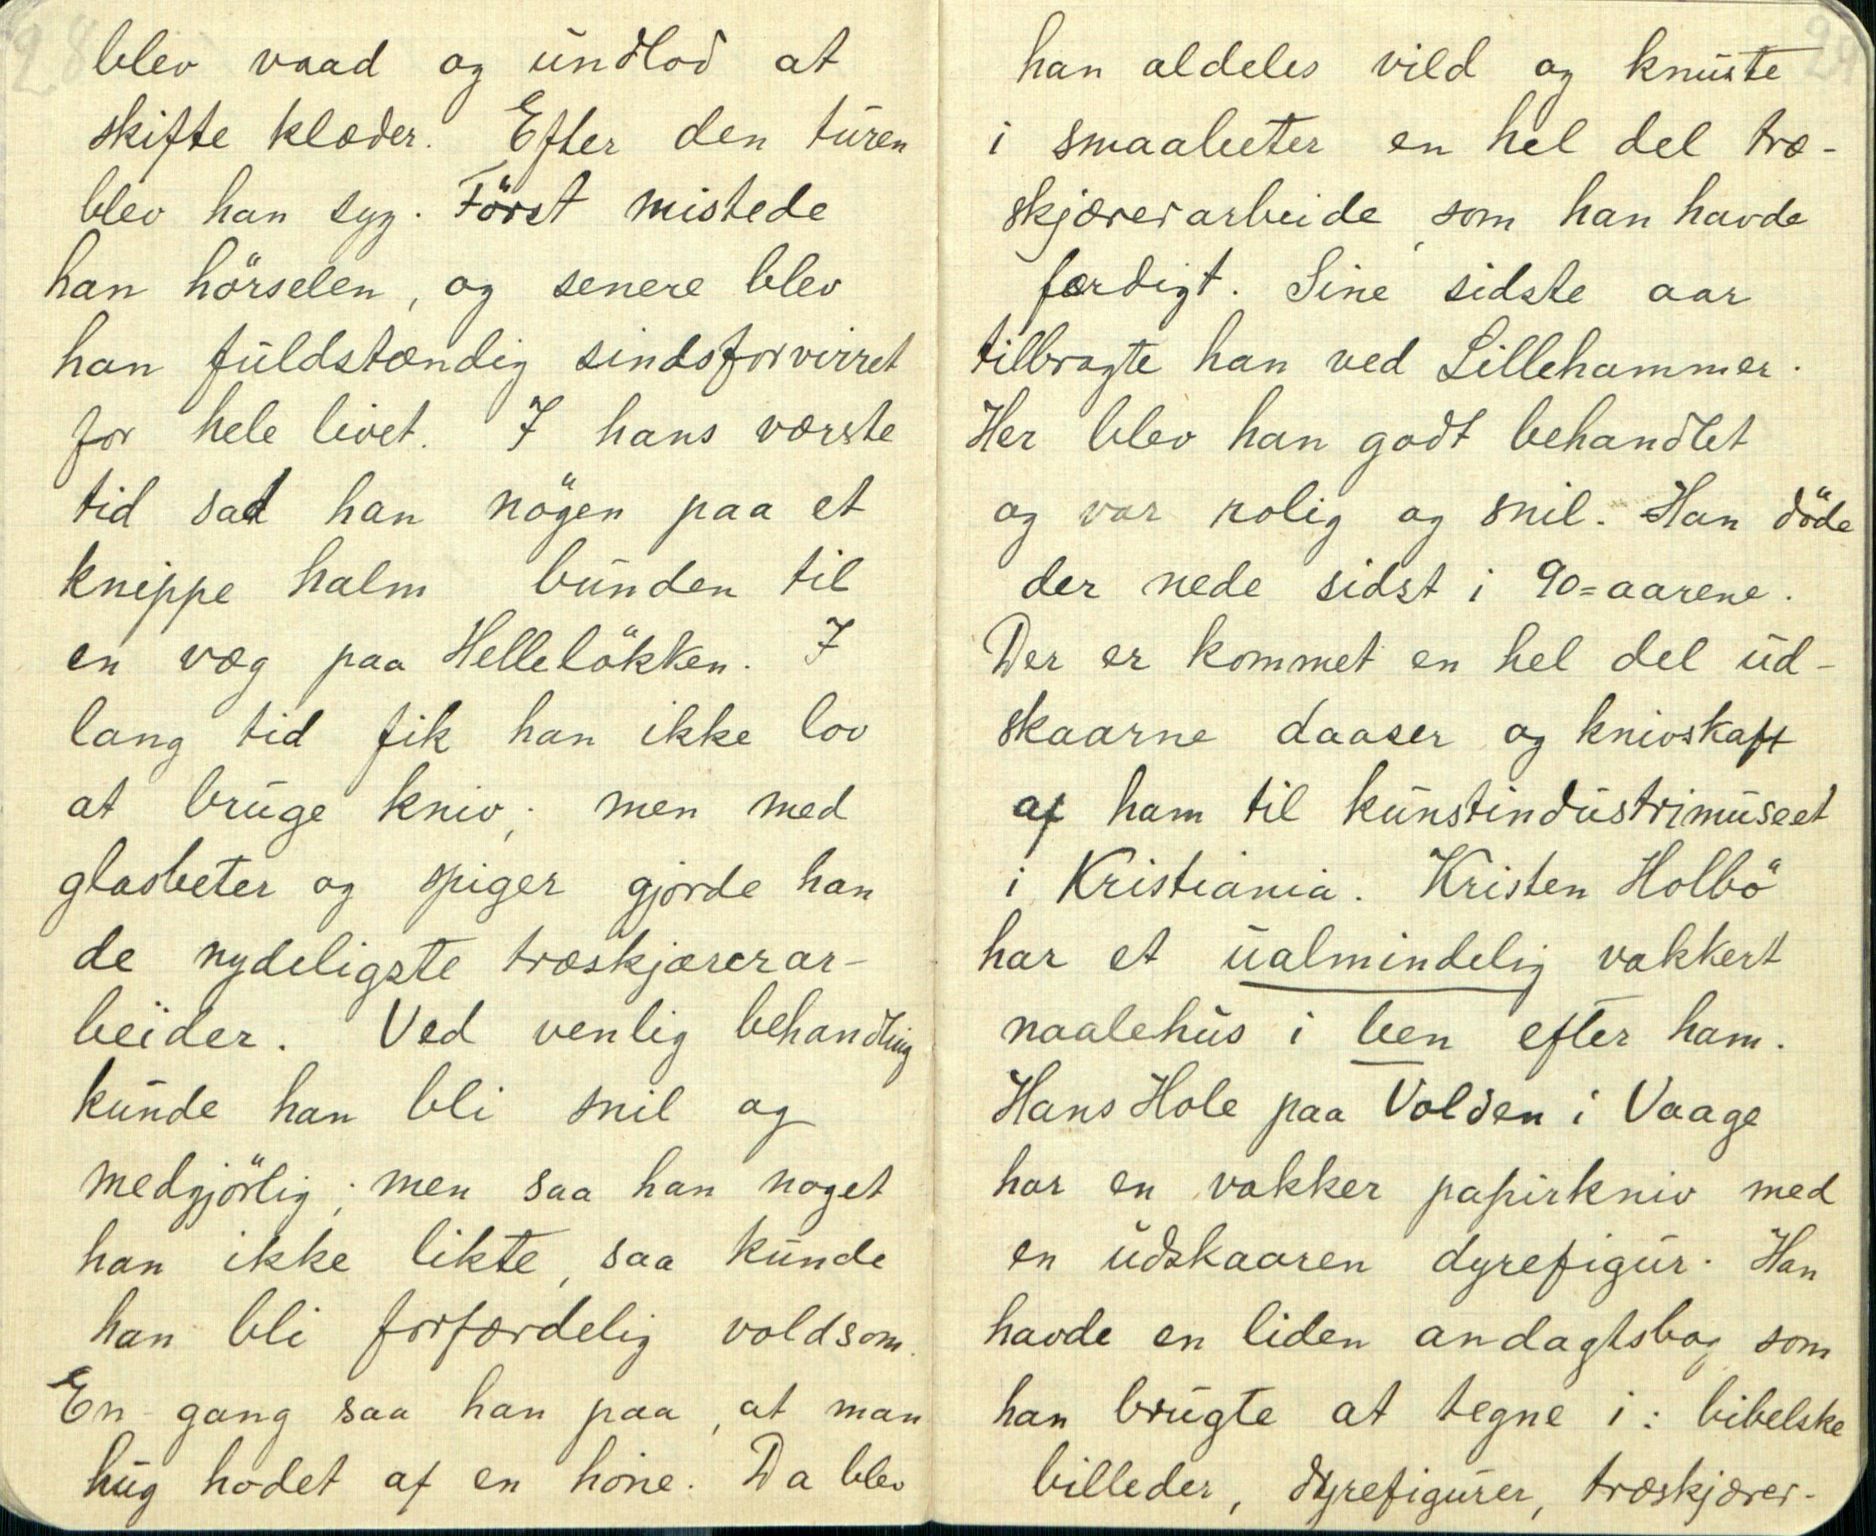 28
blev vaad og undlod at
skifte klæder. Efter den turen
blev han syg. Först mistede
han hörselen, og senere blev
han fuldstændig sindsforvirret
for hele livet. I hans værste
tid sad han nögen paa et
kneppe halm bunden til
en væg paa Hellelökken. I
lang tid fik han ikke lov
at bruge kniv; men med
glasbeter og spiger gjorde han
de nydeligste træskjærerar-
beider. Ved venlig behandling
kunde han bli snil og
medgjörlig; men saa han noget
han ikke likte, saa kunde
han bli forfærdelig voldsom.
En gang saa han paa, at man
hug hodet af en höne. Da blev
29
han aldeles vild og knuste
i smaabeter en hel del træ-
skjærerarbeide, som han havde
færdigt. Sine sidste aar
tilbragte han ved Lillehammer.
Her blev han godt behandlet
og var rolig og snil. Han döde
der nede sidst i 90=aarene.
Der er kommet en hel del ud-
skaarne daaser og knivskaft
af ham til kunstindustrimuseet
i Kristiania. Kristen Holbö
har et ualmindelig vakkert
naalehus i ben efter ham.
Hans Hole paa Volden i Vaage
har en vakker papirkniv med
en udskaaren dyrefigur. Han
havde en liden andagtsbog som
han brugte at tegne i: bibelske
billeder, dyrefigurer, træskjærer-